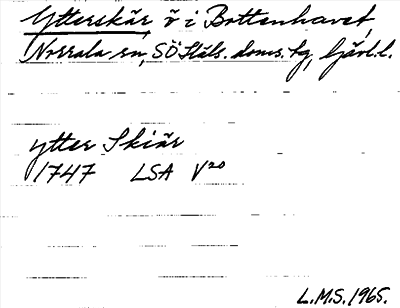 Ytterskär, ö i Bottenhavet,
Norrala sn, SÖ Häls. doms. tg, Gävl. l.
ytter Skiär
1747 LSA V²⁰
L.M.S. 1965.